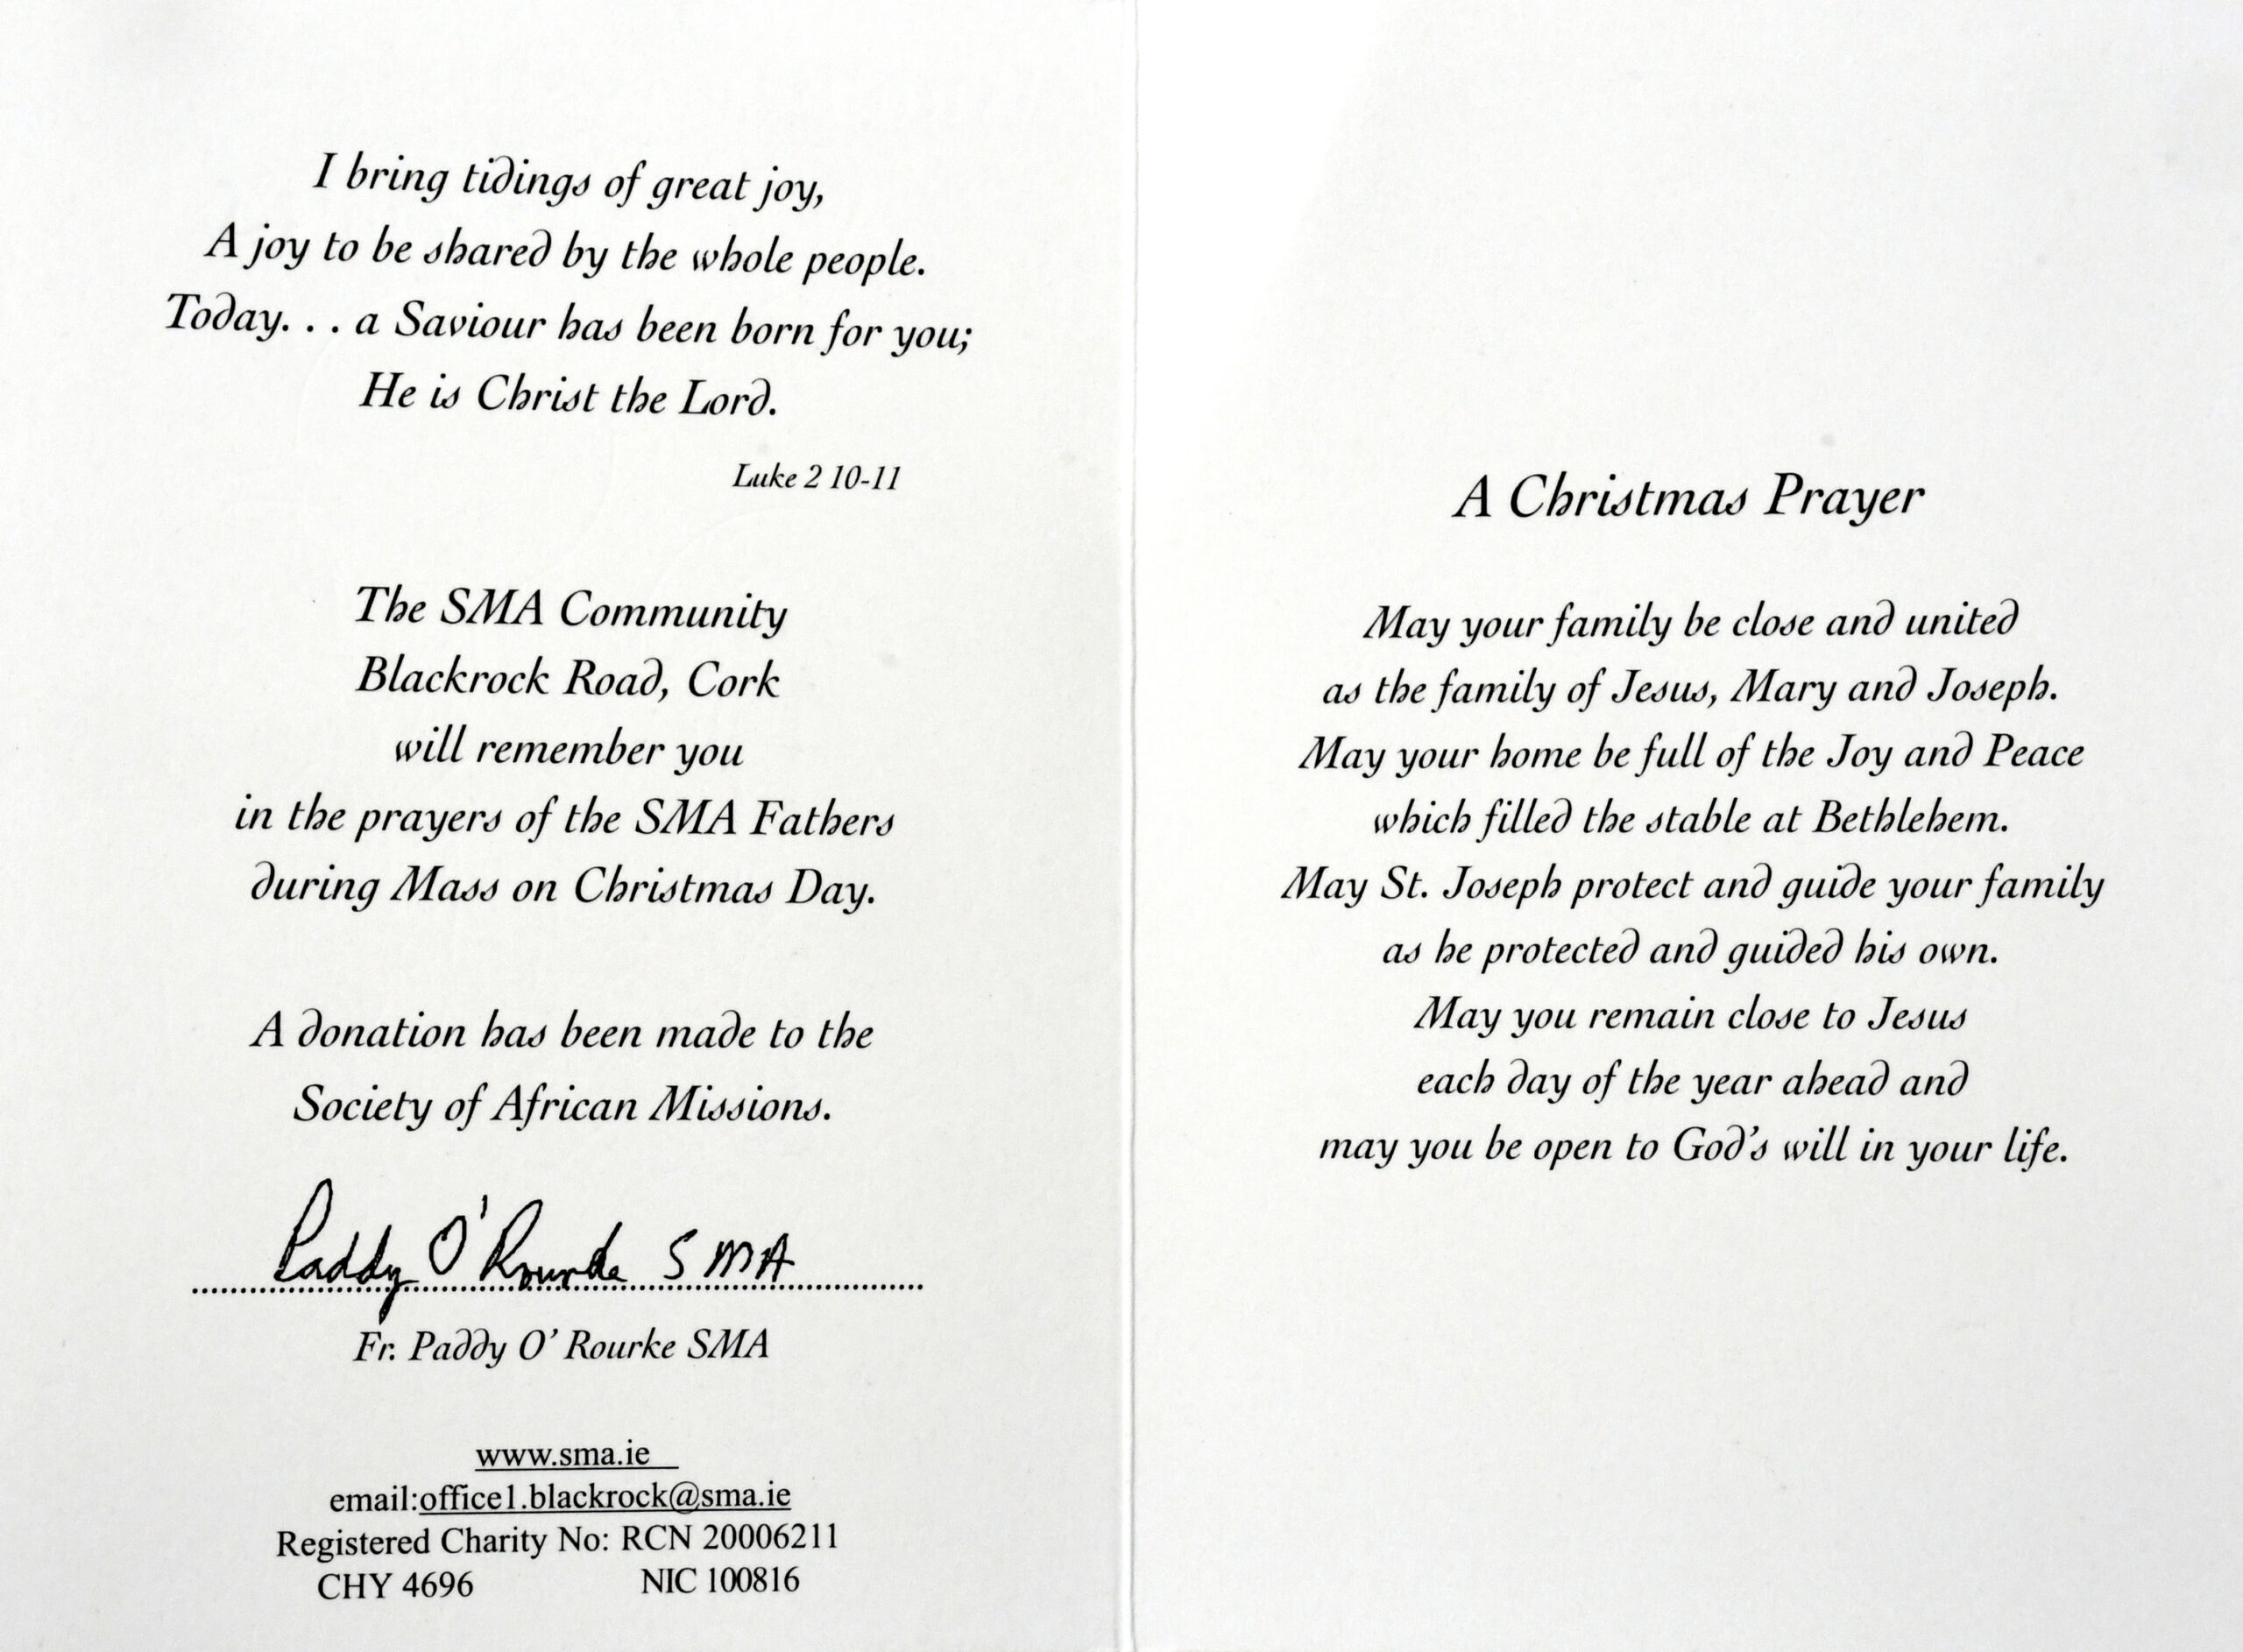 I bring tidings of great joy,
A joy to be shared by the whole people.
Today. . . a Saviour has been born for you;
He is Christ the Lord.
Luke 2 10-11
The SMA Community
Blackrock Road, Cork
will remember you
in the prayers of the SMA Fathers
during Mass on Christmas Day.
A donation has been made to the
Society of African Missions.
Paddy O' Rourke SMA
Fr. Paddy O' Rourke SMA
www.sma.ie
email:office1.blackrock@sma.ie
Registered Charity No: RCN 20006211
CHY 4696 NIC 100816
A Christmas Prayer
May your family be close and united
as the family of Jesus, Mary and Joseph.
May your home be full of the Joy and Peace
which filled the stable at Bethlehem.
May St. Joseph protect and guide your family
as he protected and guided his own.
May you remain close to Jesus
each day of the year ahead and
may you be open to God's will in your life.